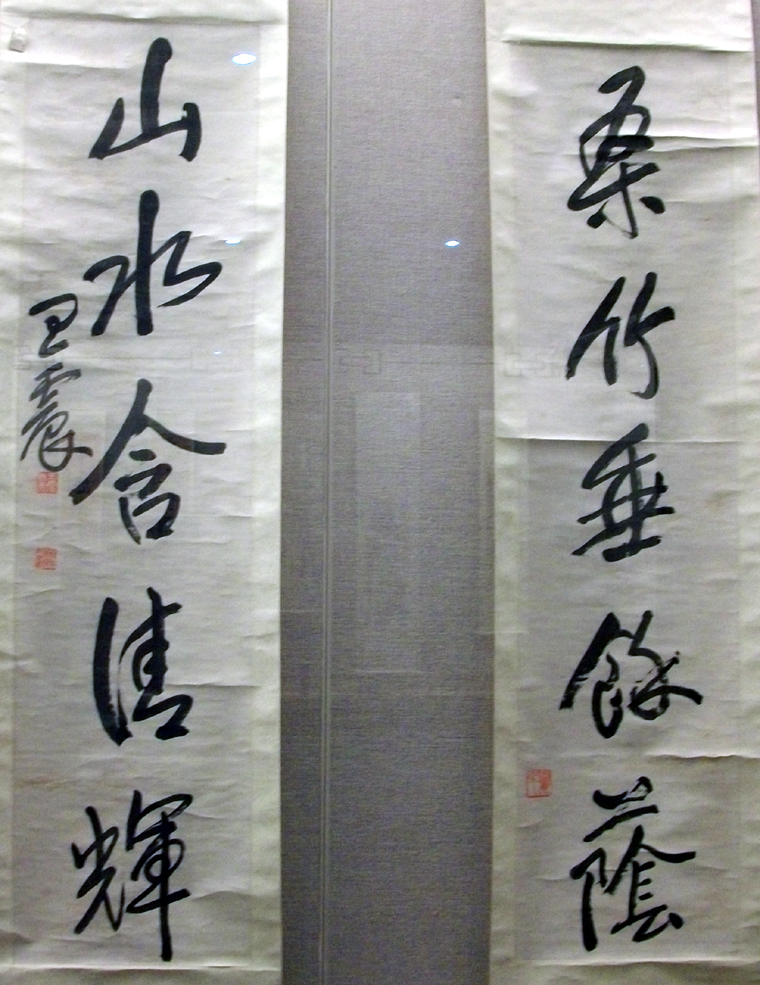 桑竹垂餘蔭
山水含清輝
王震